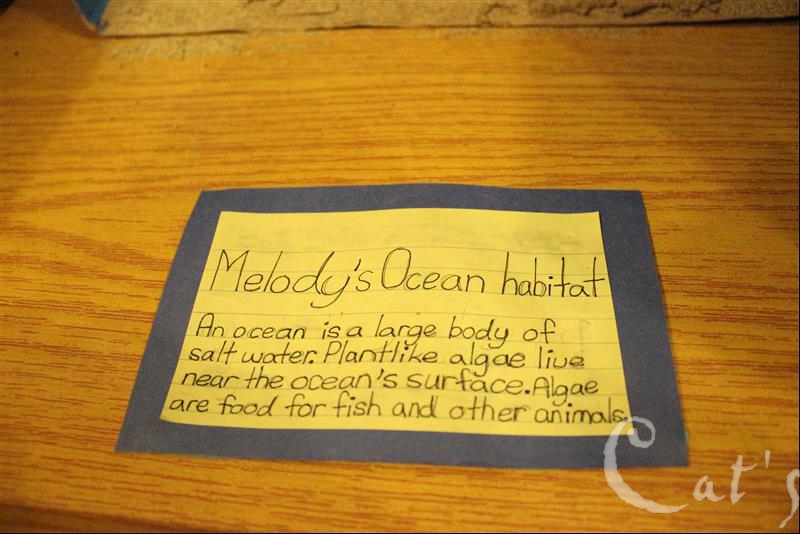 Melody's Ocean habitat
An ocean is a large body of
salt water. Plantlike algae live
near the ocean's surface. Algae
are food for fish and other animals.
Cat's